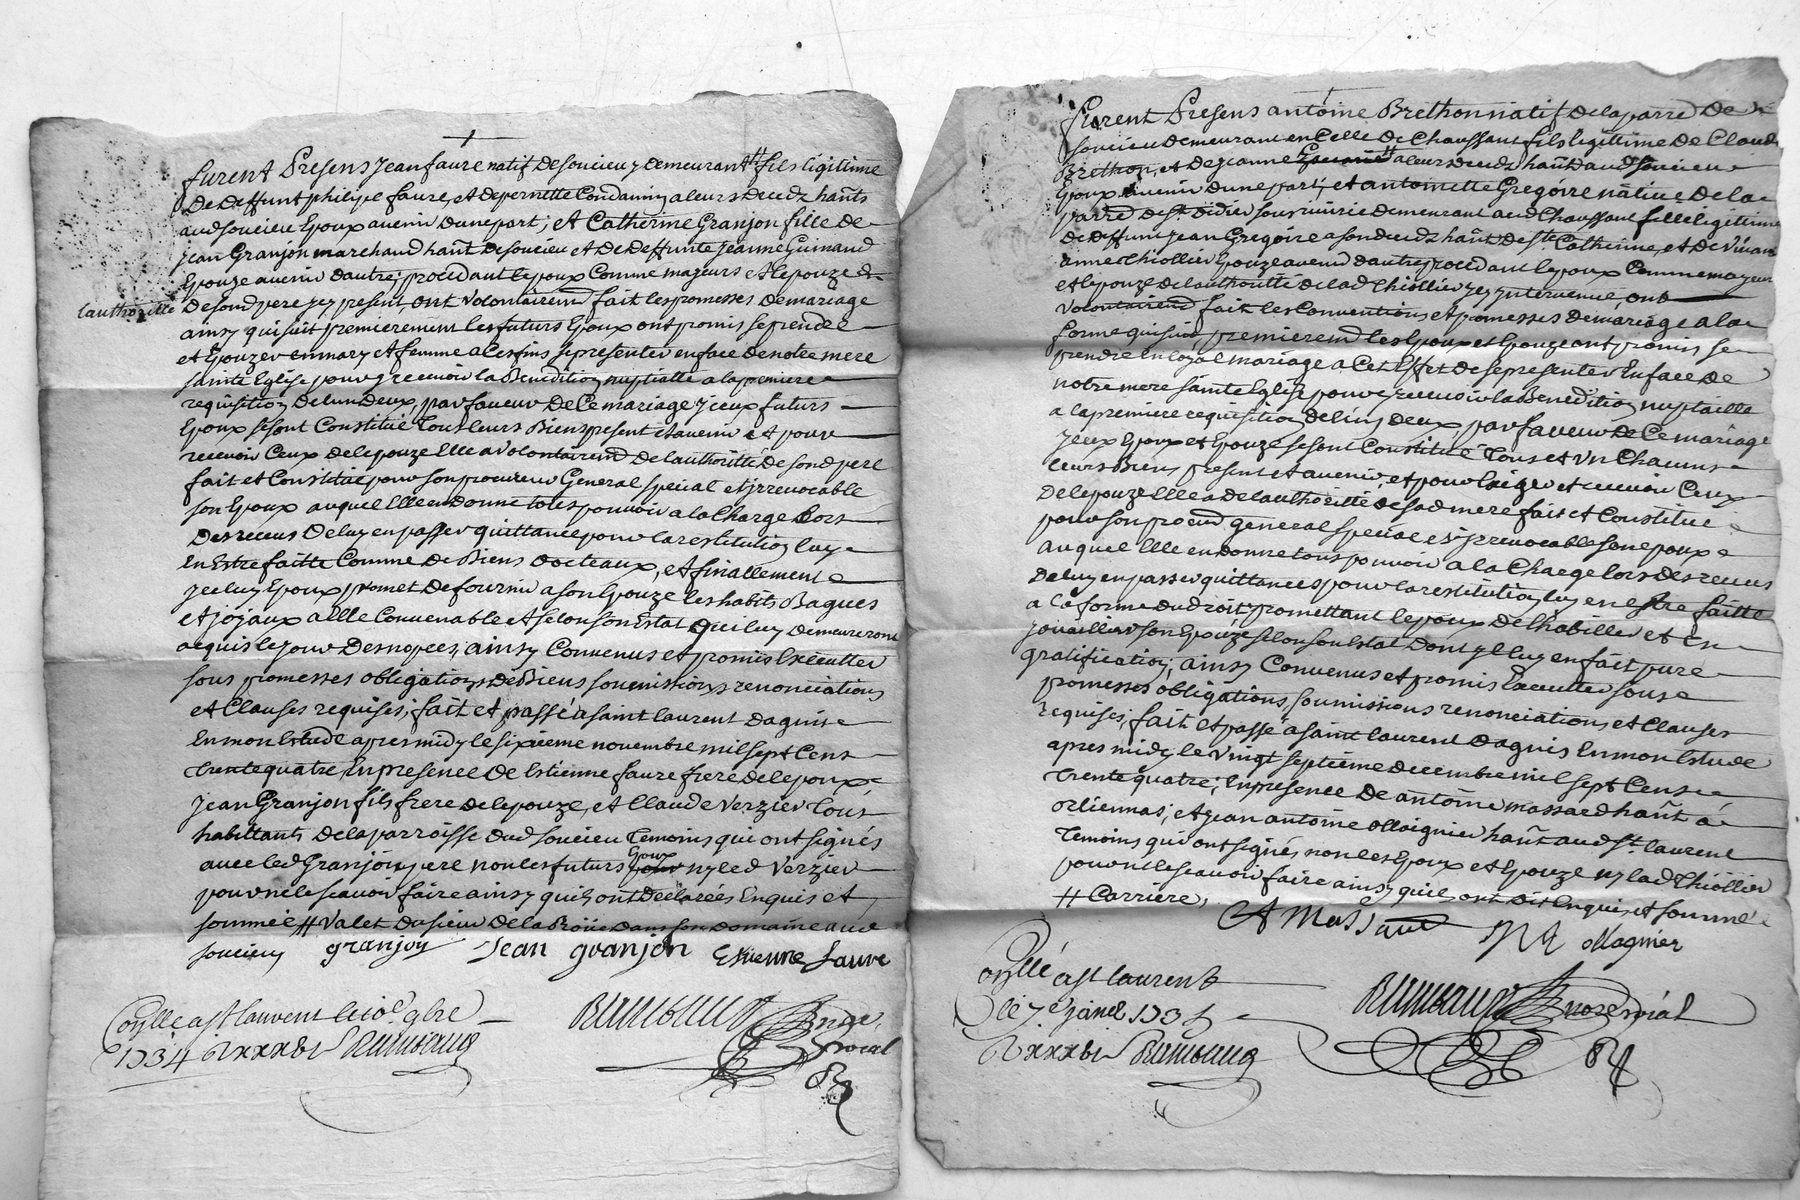 furent Presens Jean faure natif de soucieu y demeurant # fils légitime
de deffunt philipe faure, et de pernette Condamin a leurs decedz hants
aud soucieu Epoux avenir dune part; et Catherine Granjon fille de
jean Granjon marchand hant de soucieu et de deffunte jeanne Guinand
Epouze avenir dautre; procedant lepoux Comme majeurs et lepouze de
lauthoritté
de sond pere icy present, ont volontairemt fait les promesses de mariage
ainsy quil suit, premierement les futurs Epoux ont promis se prendre
et Epouzer en mary et femme a Ces fins se presenter en face de notre mere
sainte Eglise pour y recevoir la Benediction nuptialle a la premiere
requisition de lun deux, par faveur de Ce mariage yceux futurs
Epoux se sont Constitué Tous leurs Biens present et avenir et pour
recevoir Ceux de lepouze Elle a volontairemt de lauthoritté de sond pere
fait et Constitué pour son procureur General special et irrevocable
son Epoux auquel Elle en donne tous pouvoir a la Charge Lors
des receus de luy en passer quittance pour la restitution luy
en Estre faitte Comme de Biens dotteaux, et finallement
yceluy Epoux promet de fournir a son Epouze les habits Bagues
et joyaux a Elle Convenable et selon son Estat qui luy demeureront
acquis le jour des nopces; ainsy Convenus et promis Executter
sous promesses obligations de Biens soumissions renonciations
et Clauses requises; fait et passé a saint laurent dagnis
En mon Estude apres midy le sixieme novembre mil sept Cens
trente quatre, En presence de Estienne faure frere de lepoux
Jean Granjon fils frere de lepouze, et Claude verzier Tous
habittants de la parroisse dud soucieu Temoins qui ont signés
avec led Granjon pere non les futurs Epoux ny led verzier
pour ne le scavoir faire ainsy quils ont declarés Enquis et
sommé # valet du sieur de la Roüe dans son domaine aud
soucieu granjon Jean granjon Estienne faure
Conllé a st laurent le 10e 9bre
1734 Rimbaud
Rimbaud
furent Presens antoine Brethon natif de la parre de
soucieu demeurant en Celle de Chaussant fils legitime de Claude
Brethon, et de jeanne # a leurs decedz hants aud soucieu
Epoux avenir dune part; et antoinette Gregoire native de la
parre de st didier sous rivirie demeurant aud Chaussant fille legitime
de deffunt jean Gregoire a son decedz hant de ste Catherine, et de vivante
anne thiollier Epouze avenir dautre, procedant lepoux Comme majeur
et lepouze de lauthoritté de lad thiollier icy intervenue, ont
volontairemt fait les Conventions et promesses de mariage a la
forme qui suit, premieremt les Epoux et Epouze ont promis se
prendre en loyal mariage a Cet Effet de se presenter En face de
notre mere sainte Eglize pour y recevoir la Benediction nuptialle
a la premiere requisition de lun deux, par faveur de Ce mariage
yceux Epoux et Epouze se sont Constitué Tous et un Chacuns
leurs Biens present et avenir, et pour Exiger et recevoir Ceux
de lepouze Elle a de lauthoritté de sad mere fait et Constitué
pour son procur general special et irrevocable son epoux
auquel Elle en donne tous pouvoir a la Charge lors des receus
de luy en passer quittances pour la restitution luy en estre faitte
a la forme du droit; promettant lepoux de lhabiller et En
jouailler son Epouze selon son Estat dont Elle luy en fait pure
gratification; ainsy Convenus et promis Executter sous
promesses obligations, soumissions renonciations et Clauses
requises; fait et passé a saint laurent dagnis En mon Estude
apres midy le vingt septieme decembre mil sept Cens
trente quatre; En presence de antoine massard hant a
orliennas; et jean antoine ollagnier hant aud st laurent
Temoins qui ont signés non les Epoux et Epouze ny lad thiollier
pour ne le scavoir faire ainsy quils ont dit Enquis et sommé
# Carriere,
A Massard ollagnier
Conllé a st laurent
le 7e janr 1735
Rimbaud
Rimbaud nore roial